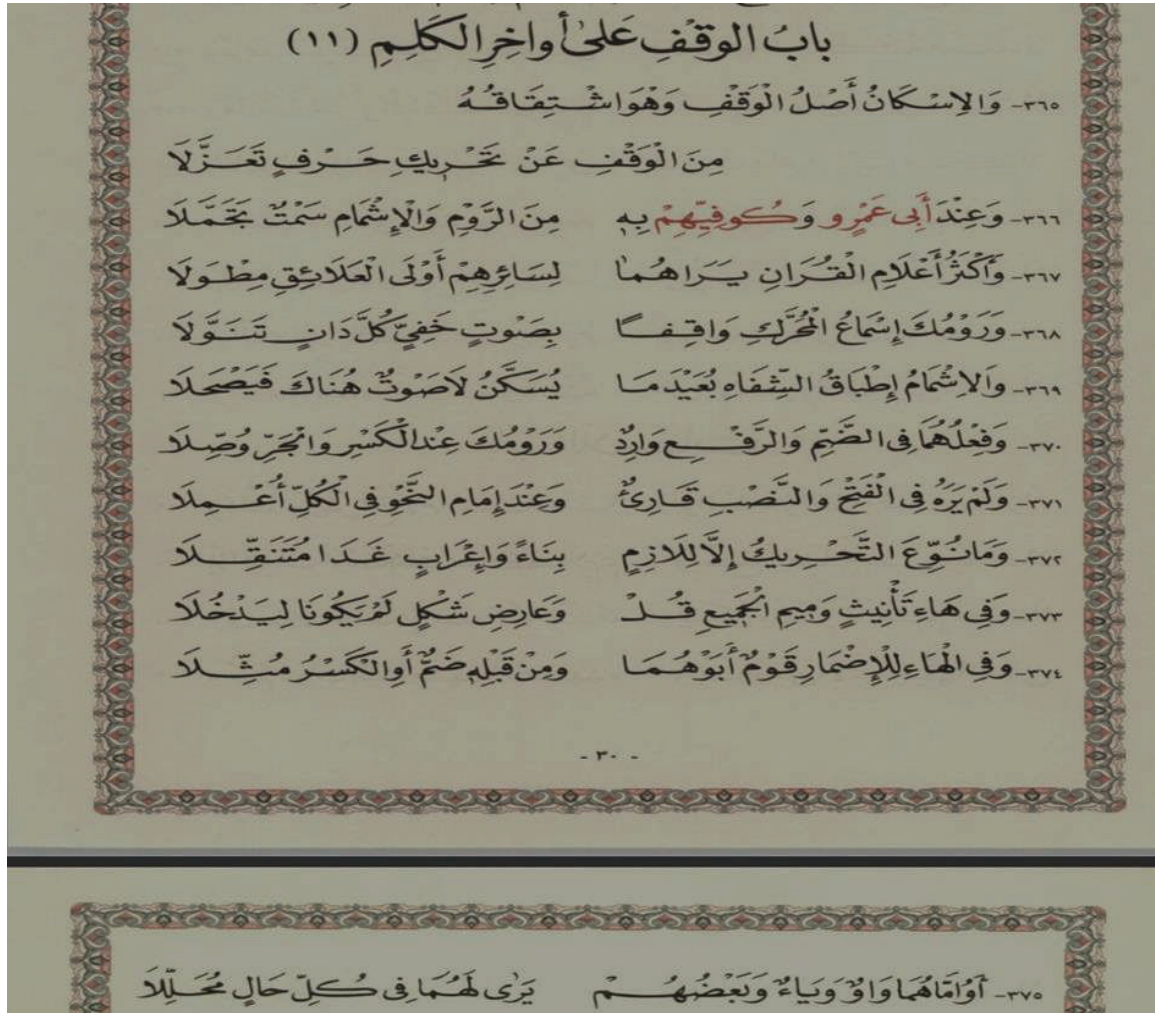 بابُ الوقْفِ عَلىٰ أواخِرِ الكَلِمِ (١١)
٣٦٥- وَالاِسْكَانُ أَصْلُ الْوَقْفِ وَهْوَ اشْتِقَاقُهُ
مِنَ الْوَقْفِ عَنْ تَحْرِيكِ حَرْفٍ تَعَزَّلَا
٣٦٦- وَعِنْدَ أَبِى عَمْرٍو وَكُوفِيِّهِمْ بِهِ مِنَ الرَّوْمِ وَالْإِشْمَامِ سَمْتٌ تَجَمَّلَا
٣٦٧- وَأَكْثَرُ أَعْلَامِ الْقُرَانِ يَرَاهُمَا لِسَائِرِهِمْ أَوْلَى الْعَلَائِقِ مِطْوَلَا
٣٦٨- وَرَوْمُكَ إِسْمَاعُ الْمُحَرَّكِ وَاقِفًا بِصَوْتٍ خَفِيٍّ كُلَّ دَانٍ تَنَوَّلَا
٣٦٩- وَالاِشْمَامُ إِطْبَاقُ الشِّفَاهِ بُعَيْدَ مَا يُسَكَّنُ لَا صَوْتٌ هُنَاكَ فَيَصْحَلَا
٣٧٠- وَفِعْلُهُمَا فِى الضَّمِّ وَالرَّفْعِ وَارِدٌ وَرَوْمُكَ عِنْدَ الْكَسْرِ وَالْجَرِّ وُصِّلَا
٣٧١- وَلَمْ يَرَهُ فِى الْفَتْحِ وَالنَّصْبِ قَارِئٌ وَعِنْدَ إِمَامِ النَّحْوِ فِى الْكُلِّ أُعْمِلَا
٣٧٢- وَمَا نُوِّعَ التَّحْرِيكُ إِلَّا لِلَازِمٍ بِنَاءً وَإِعْرَابٍ غَدَا مُتَنَقِّلَا
٣٧٣- وَفِى هَاءِ تَأْنِيثٍ وَمِيمِ الْجَمِيعِ قُلْ وَعَارِضِ شَكْلٍ لَمْ يَكُونَا لِيَدْخُلَا
٣٧٤- وَفِى الْهَاءِ لِلْإِضْمَارِ قَوْمٌ أَبَوْهُمَا وَمِنْ قَبْلِهِ ضَمٌّ أَوِ الْكَسْرُ مُثِّلَا
- ٣٠ -
٣٧٥- أَوُ امَّاهُمَا وَاوٌ وَيَاءٌ وَبَعْضُهُمْ يَرٰى لَهُمَا فِى كُلِّ حَالٍ مُحَلِّلَا